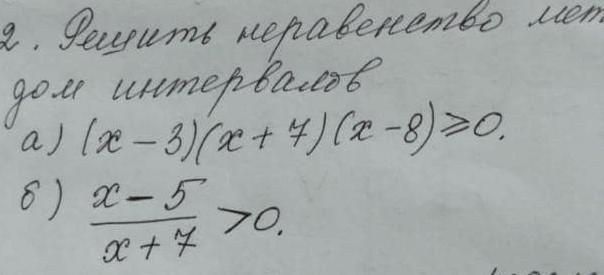 2. Решить неравенство мето
дом интервалов
а) (x - 3)(x + 7)(x - 8) ≥ 0.
б) \frac{x - 5}{x + 7} > 0.